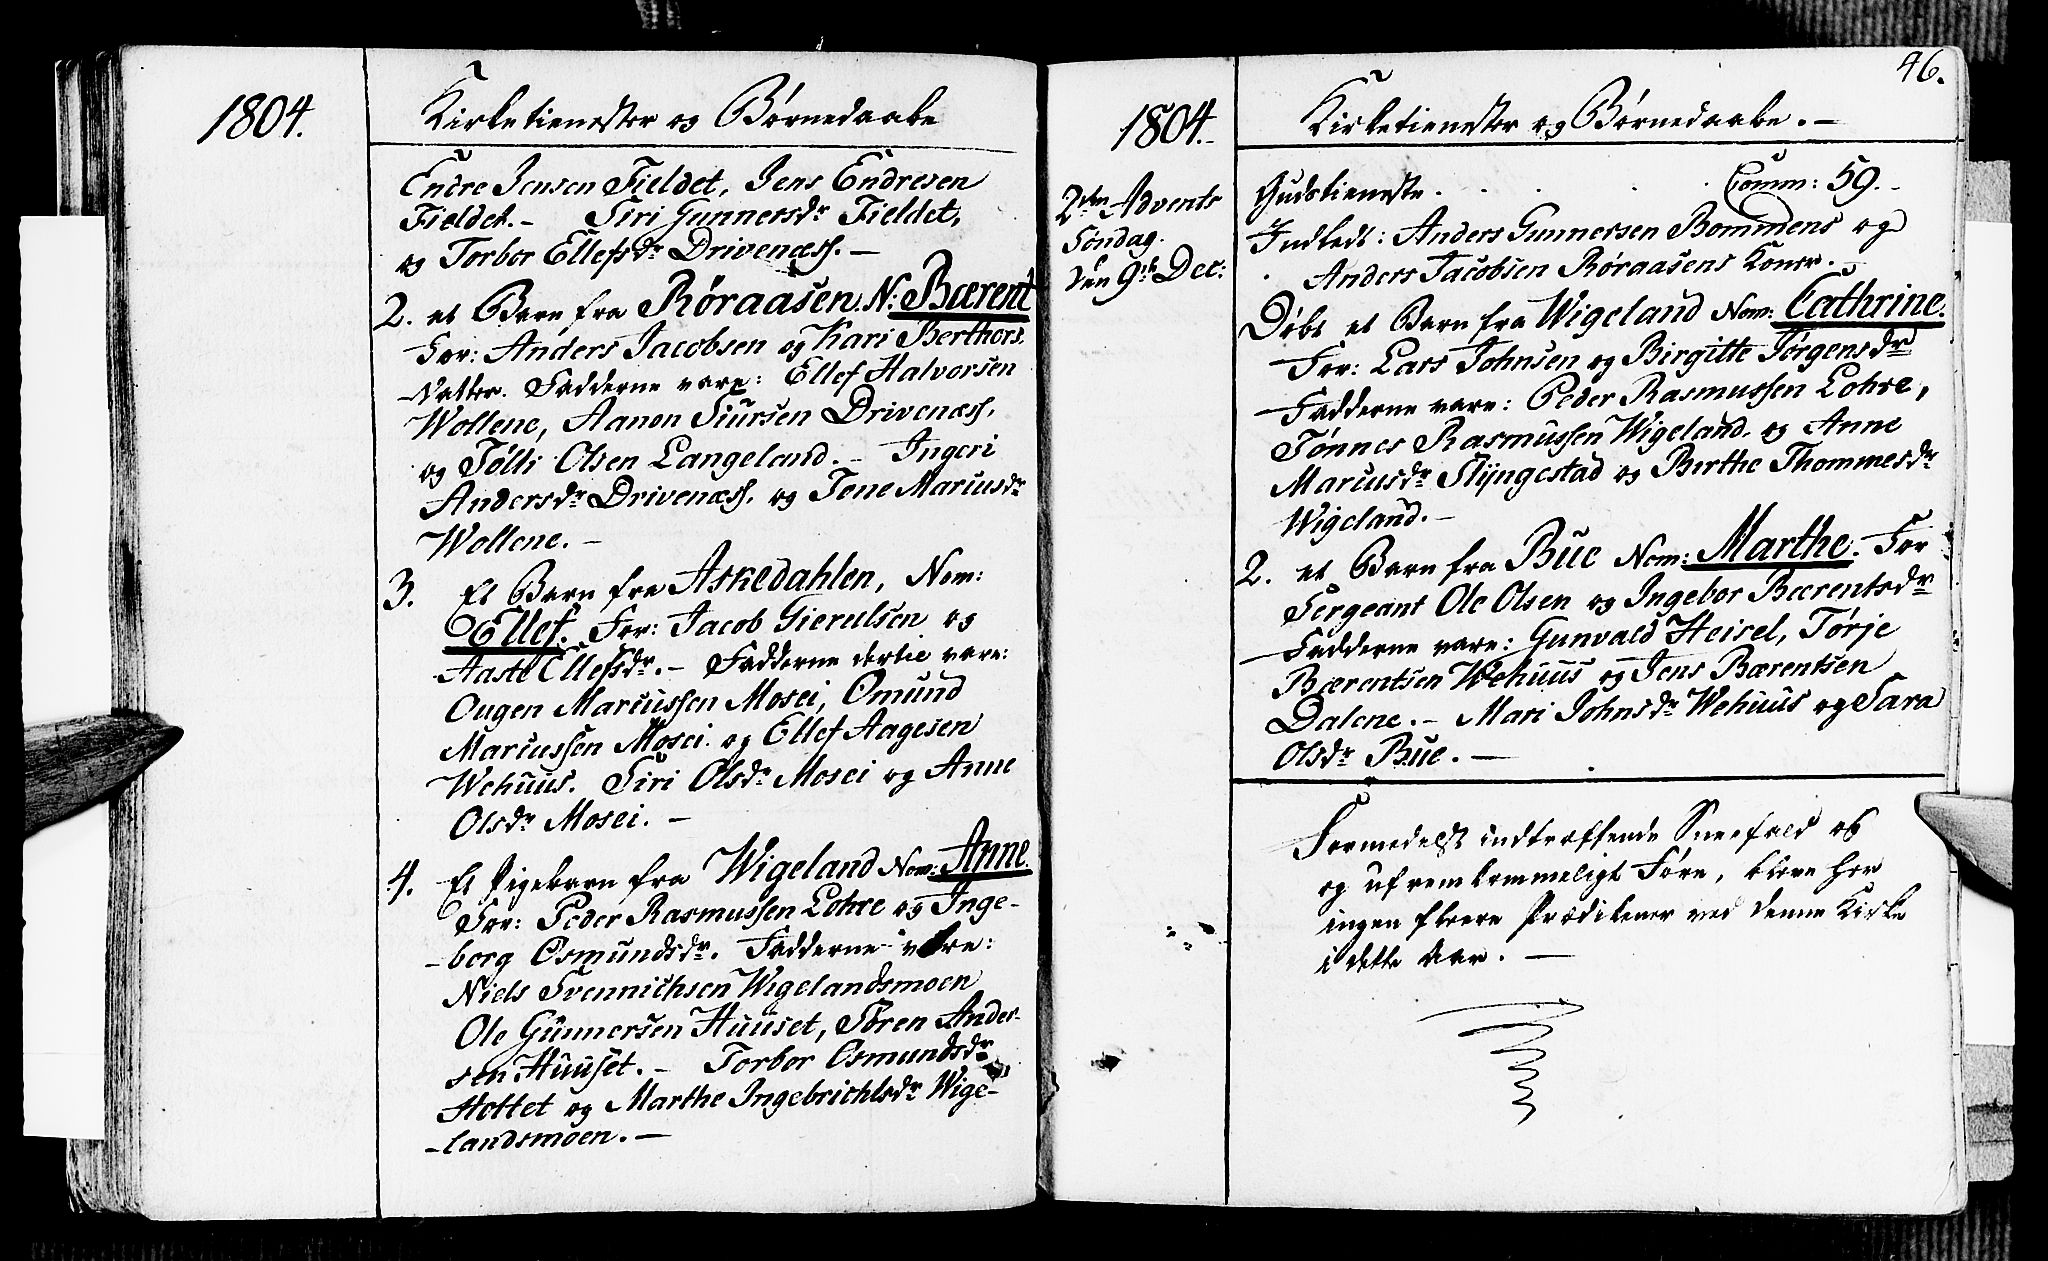 1804.
Kirketienester og Børnedaabe
Endre Jensen Fieldet, Jens Endresen
Fieldet. - Siri Gunnersdr Fieldet,
og Torbor Ellefsdr Drivenæss. -
2. et Barn fra Røraasen. N: Bærent
For: Anders Jacobsen og Kari Berthors-
Datter. Fadderne vare: Ellef Halvorsen
Wollene, Aanon Siursen Drivenæss,
og Tølli Olsen Langeland. - Ingeri
Andersdr Drivenæss. og Tone Marcusdr
Wollene. -
3. Et Barn fra Askedahlen, Nom:
Ellef. For: Jacob Gierulsen og
Aaste Ellefsdr. - Fadderne dertil vare:
Ougen Marcussen Mosei, Omund
Marcussen Mosei. og Ellef Aagesen
Wehuus. Siri Olsdr Mosei og Anne
Olsdr Mosei. -
4. Et Pigebarn fra Wigeland Nom: Anne.
For: Peder Rasmussen Lohre og Inge-
-borg Osmundsdr. Fadderne vare:
Niels Svennichsen Wigelandsmoen
Ole Gunnersen Huuset, Søren Ander-
sen Huuset. - Torbor Osmundsdr
Stottet og Marthe Ingebrichtsdr Wige-
-landsmoen. -
46.
1804.-
Kirketienester og Børnedaabe. -
2den Advents
Søndag.
den 9de Dec:
Gudstieneste. . . . . Comm: 59. -
Indledt: Anders Gunnersen Bommens og
Anders Jacobsen Røraasens Koner. -
Døbt et Barn fra Wigeland Nom: Cathrine.
For: Lars Johnsen og Birgitte Jørgensdr
Fadderne vare: Peder Rasmussen Lohre,
Tønnes Rasmussen Wigeland. og Anne
Marcusdr Slÿngestad og Birthe Thommesdr
Wigeland. -
2. et Barn fra Bue Nom: Marthe. For
Sergeant Ole Olsen og Ingebor Bærentsdr
Fadderne vare: Gunvald Heisel, Tørje
Bærentsen Wehuus og Jens Bærentsen
Dalene. - Mari Johnsdr Wehuus og Sara
Olsdr Bue. -
Formedelst indtræffende Sneefald og
og ufremkommeligt Føre, bleve her
ingen fleere Prædikener ved denne Kirke
i dette Aar. -